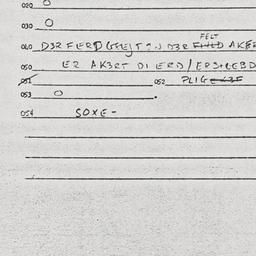 020 O
030 O
FELT
040 D3R FERD GEEJT IN D3R AKER
050 ER AK3RT DI ERD/ERS
051 052 PLIG
053 O
054 SOXE-